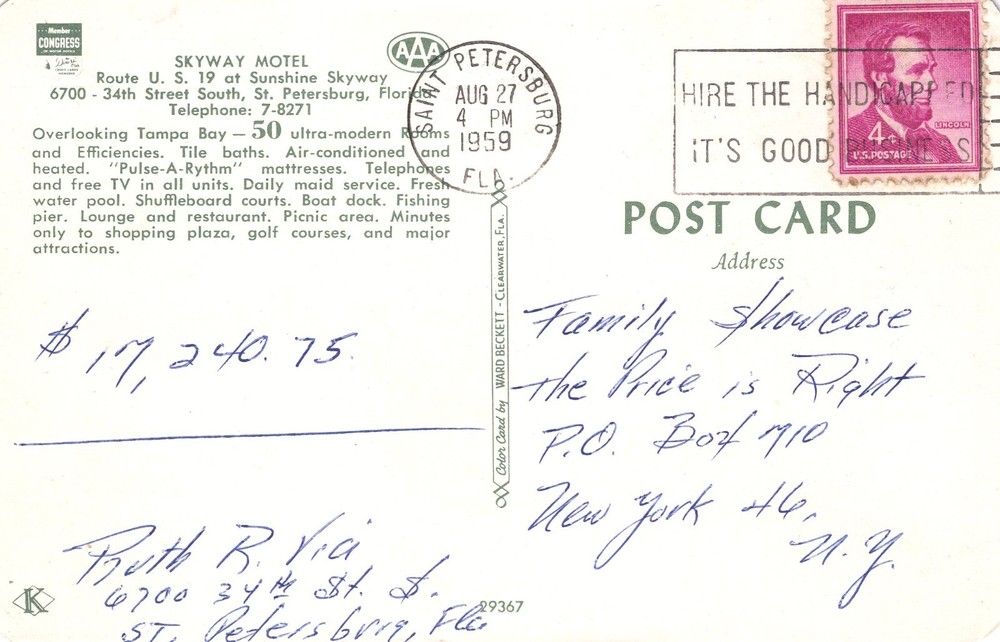 Member
CONGRESS
SKYWAY MOTEL
AAA
Route U. S. 19 at Sunshine Skyway
6700 - 34th Street South, St. Petersburg, Florida
Telephone: 7-8271
Overlooking Tampa Bay — 50 ultra-modern Rooms
and Efficiencies. Tile baths. Air-conditioned and
heated. "Pulse-A-Rythm" mattresses. Telephones
and free TV in all units. Daily maid service. Fresh
water pool. Shuffleboard courts. Boat dock. Fishing
pier. Lounge and restaurant. Picnic area. Minutes
only to shopping plaza, golf courses, and major
attractions.
SAINT PETERSBURG
AUG 27
4 PM
1959
FLA.
HIRE THE HANDICAPPED
IT'S GOOD BUSINESS
LINCOLN
4¢
U.S. POSTAGE
POST CARD
Address
Color Card by WARD BECKETT - CLEARWATER, FLA.
$ 17,240.75
Family Showcase
the Price is Right
P.O. Box 710
New York 46,
N.Y.
Ruth R. Via
6700 34th St. S.
ST. Petersburg, Fla
K
29367